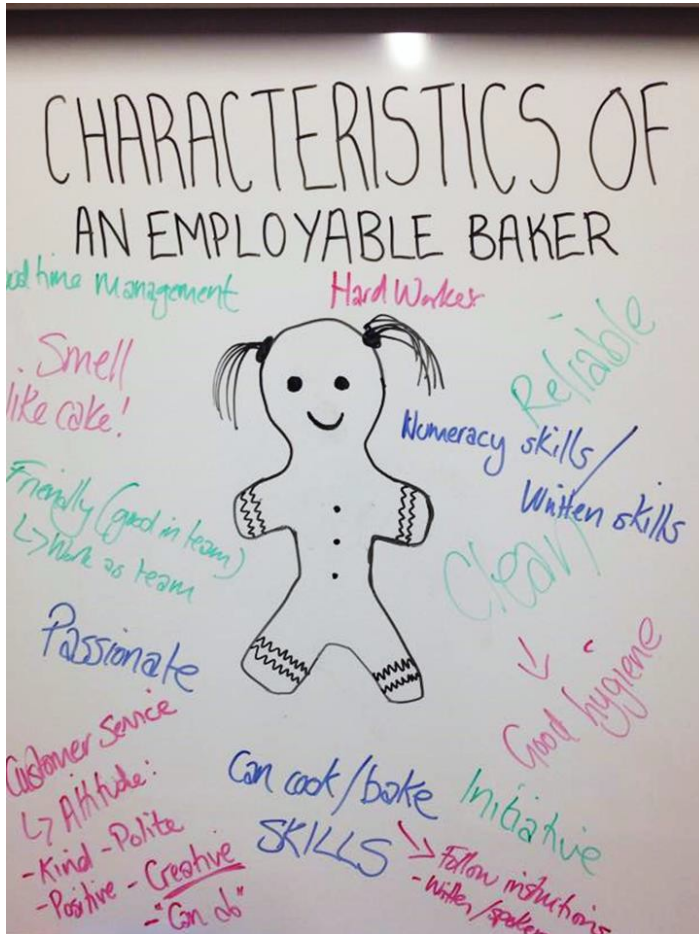 CHARACTERISTICS OF
AN EMPLOYABLE BAKER
time management
Hard Worker
Reliable
Smell
like cake!
Numeracy skills/
Written skills
Friendly (good in team)
↳ Work as team
Clean
Passionate
Good hygiene
Customer Service
↳ Attitude:
- Kind - Polite
- Positive - Creative
- "Can do"
Can cook/bake
SKILLS
Initiative
Follow instructions
- Written/spoken